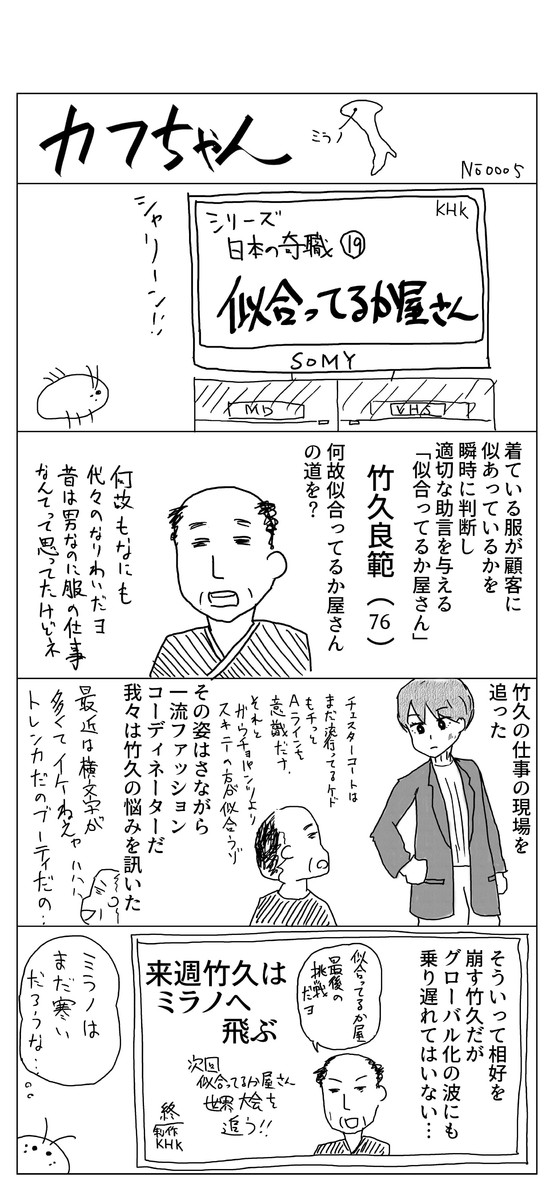 カフちゃん
ミラノ
No0005
シャリーン!!
KHK
シリーズ
日本の奇職⑲
似合ってるか屋さん
SOMY
MD
VHS
着ている服が顧客に
似あっているかを
瞬時に判断し
適切な助言を与える
「似合ってるか屋さん」
竹久良範（76）
何故似合ってるか屋さん
の道を？
何故もなにも
代々のなりわいだヨ
昔は男なのに服の仕事
なんてって思ってたけどネ
竹久の仕事の現場を
追った
チェスターコートは
まだ流行ってるケド
もチっと
Aラインも
意識だナ.
それと
ガウチョパンツより
スキニーの方が似合うゾ
その姿はさながら
一流ファッション
コーディネーターだ
我々は竹久の悩みを訊いた
最近は横文字が
多くてイケねえや ハハハ
トレンカだのブーティだの…
そういって相好を
崩す竹久だが
グローバル化の波にも
乗り遅れてはいない…
似合ってるか屋
最後の
挑戦
だヨ
来週竹久は
ミラノへ
飛ぶ
次回
似合ってるか屋さん
世界大会を
追う!!
終
製作
KHK
ミラノは
まだ寒い
だろうな…